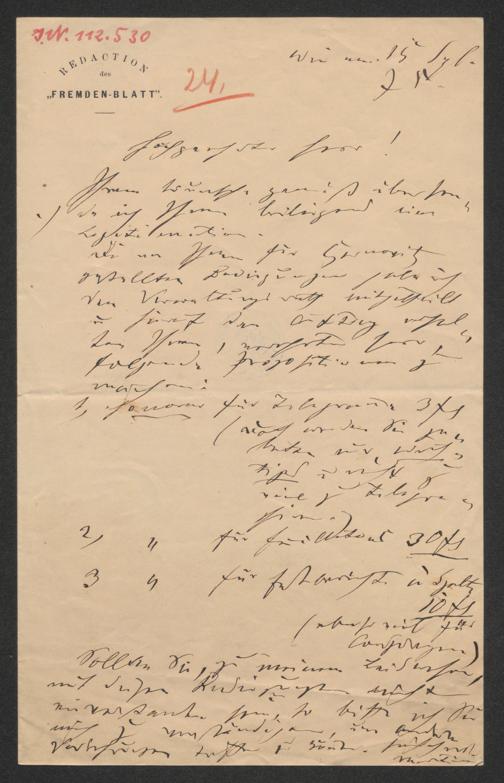 J.N. 112.530
REDACTION
des
„FREMDEN-BLATT“.
24.
Wien am 15
Hochgeehrter Herr!
Ihrem Wunsche gemäß übersen-
de ich Ihnen beiliegend eine
Legitimation.
Die von Ihnen für
gestellten Bedingungen habe ich
dem Verwaltungsrath mitgetheilt
u
Ihnen, verehrter Herr,
folgende Propositionen zu
machen:
1, Honorar für Telegramme 3 fl
(doch werden Sie ge-
beten nur
u nicht zu
viel zu telegra-
phiren.)
2, " für Feuilletons 30 fl
3 " für Festberichte à Spalte
10 fl
(ebenso viel für
)
Sollten Sie, zu meinem Leidwesen,
mit diesen Bedingungen nicht
einverstanden sein, so bitte ich Sie
mich zu verständigen, um andere